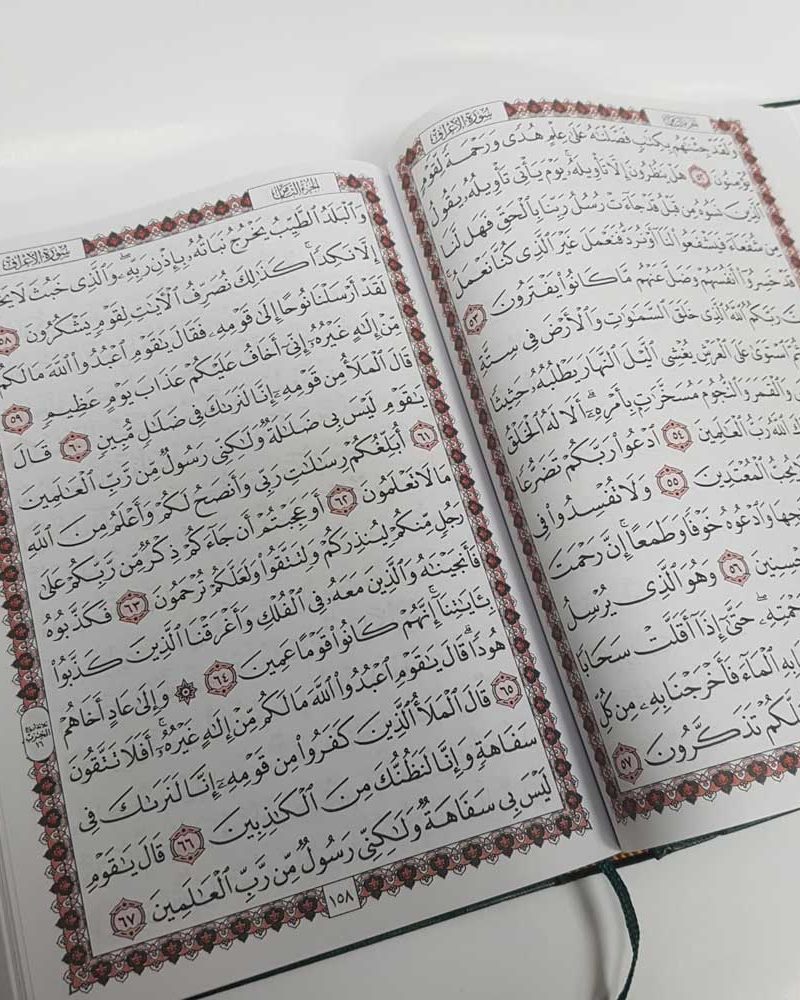 سُورَةُ الأَعْرَافِ الجُزْءُ الثَّامِنُ
وَلَقَدْ جِئْنَٰهُم بِكِتَٰبٍ فَصَّلْنَٰهُ عَلَىٰ عِلْمٍ هُدًى وَرَحْمَةً لِّقَوْمٍ
يُؤْمِنُونَ ٥٢ هَلْ يَنظُرُونَ إِلَّا تَأْوِيلَهُۥ يَوْمَ يَأْتِى تَأْوِيلُهُۥ يَقُولُ
ٱلَّذِينَ نَسُوهُ مِن قَبْلُ قَدْ جَآءَتْ رُسُلُ رَبِّنَا بِٱلْحَقِّ فَهَل لَّنَا
مِن شُفَعَآءَ فَيَشْفَعُوا۟ لَنَآ أَوْ نُرَدُّ فَنَعْمَلَ غَيْرَ ٱلَّذِى كُنَّا نَعْمَلُ
قَدْ خَسِرُوٓا۟ أَنفُسَهُمْ وَضَلَّ عَنْهُم مَّا كَانُوا۟ يَفْتَرُونَ ٥٣
رَبَّكُمُ ٱللَّهُ ٱلَّذِى خَلَقَ ٱلسَّمَٰوَٰتِ وَٱلْأَرْضَ فِى سِتَّةِ
ثُمَّ ٱسْتَوَىٰ عَلَى ٱلْعَرْشِ يُغْشِى ٱلَّيْلَ ٱلنَّهَارَ يَطْلُبُهُۥ حَثِيثًا
وَٱلْقَمَرَ وَٱلنُّجُومَ مُسَخَّرَٰتٍۭ بِأَمْرِهِۦٓ أَلَا لَهُ ٱلْخَلْقُ
ٱللَّهُ رَبُّ ٱلْعَٰلَمِينَ ٥٤ ٱدْعُوا۟ رَبَّكُمْ تَضَرُّعًا
يُحِبُّ ٱلْمُعْتَدِينَ ٥٥ وَلَا تُفْسِدُوا۟ فِى
وَٱدْعُوهُ خَوْفًا وَطَمَعًا إِنَّ رَحْمَتَ
٥٦ وَهُوَ ٱلَّذِى يُرْسِلُ
حَتَّىٰٓ إِذَآ أَقَلَّتْ سَحَابًا
بِهِ ٱلْمَآءَ فَأَخْرَجْنَا بِهِۦ مِن كُلِّ
لَعَلَّكُمْ تَذَكَّرُونَ ٥٧
الجُزْءُ الثَّامِنُ سُورَةُ الأَعْرَافِ
وَٱلْبَلَدُ ٱلطَّيِّبُ يَخْرُجُ نَبَاتُهُۥ بِإِذْنِ رَبِّهِۦ وَٱلَّذِى خَبُثَ لَا يَخْرُجُ
إِلَّا نَكِدًا كَذَٰلِكَ نُصَرِّفُ ٱلْءَايَٰتِ لِقَوْمٍ يَشْكُرُونَ ٥٨
لَقَدْ أَرْسَلْنَا نُوحًا إِلَىٰ قَوْمِهِۦ فَقَالَ يَٰقَوْمِ ٱعْبُدُوا۟ ٱللَّهَ مَا لَكُم
مِّنْ إِلَٰهٍ غَيْرُهُۥٓ إِنِّىٓ أَخَافُ عَلَيْكُمْ عَذَابَ يَوْمٍ عَظِيمٍ ٥٩
قَالَ ٱلْمَلَأُ مِن قَوْمِهِۦٓ إِنَّا لَنَرَىٰكَ فِى ضَلَٰلٍ مُّبِينٍ ٦٠ قَالَ
يَٰقَوْمِ لَيْسَ بِى ضَلَٰلَةٌ وَلَٰكِنِّى رَسُولٌ مِّن رَّبِّ ٱلْعَٰلَمِينَ
٦١ أُبَلِّغُكُمْ رِسَٰلَٰتِ رَبِّى وَأَنصَحُ لَكُمْ وَأَعْلَمُ مِنَ ٱللَّهِ
مَا لَا تَعْلَمُونَ ٦٢ أَوَعَجِبْتُمْ أَن جَآءَكُمْ ذِكْرٌ مِّن رَّبِّكُمْ عَلَىٰ
رَجُلٍ مِّنكُمْ لِيُنذِرَكُمْ وَلِتَتَّقُوا۟ وَلَعَلَّكُمْ تُرْحَمُونَ ٦٣ فَكَذَّبُوهُ
فَأَنجَيْنَٰهُ وَٱلَّذِينَ مَعَهُۥ فِى ٱلْفُلْكِ وَأَغْرَقْنَا ٱلَّذِينَ كَذَّبُوا۟
بِـَٔايَٰتِنَآ إِنَّهُمْ كَانُوا۟ قَوْمًا عَمِينَ ٦٤ ۞ وَإِلَىٰ عَادٍ أَخَاهُمْ
هُودًا قَالَ يَٰقَوْمِ ٱعْبُدُوا۟ ٱللَّهَ مَا لَكُم مِّنْ إِلَٰهٍ غَيْرُهُۥٓ أَفَلَا تَتَّقُونَ
٦٥ قَالَ ٱلْمَلَأُ ٱلَّذِينَ كَفَرُوا۟ مِن قَوْمِهِۦٓ إِنَّا لَنَرَىٰكَ فِى
سَفَاهَةٍ وَإِنَّا لَنَظُنُّكَ مِنَ ٱلْكَٰذِبِينَ ٦٦ قَالَ يَٰقَوْمِ
لَيْسَ بِى سَفَاهَةٌ وَلَٰكِنِّى رَسُولٌ مِّن رَّبِّ ٱلْعَٰلَمِينَ ٦٧
١٥٨